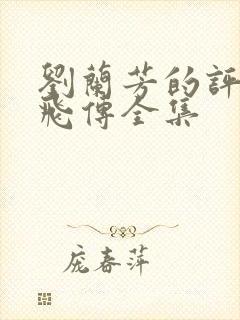 劉蘭芳的評
飛傳全集
龐春萍